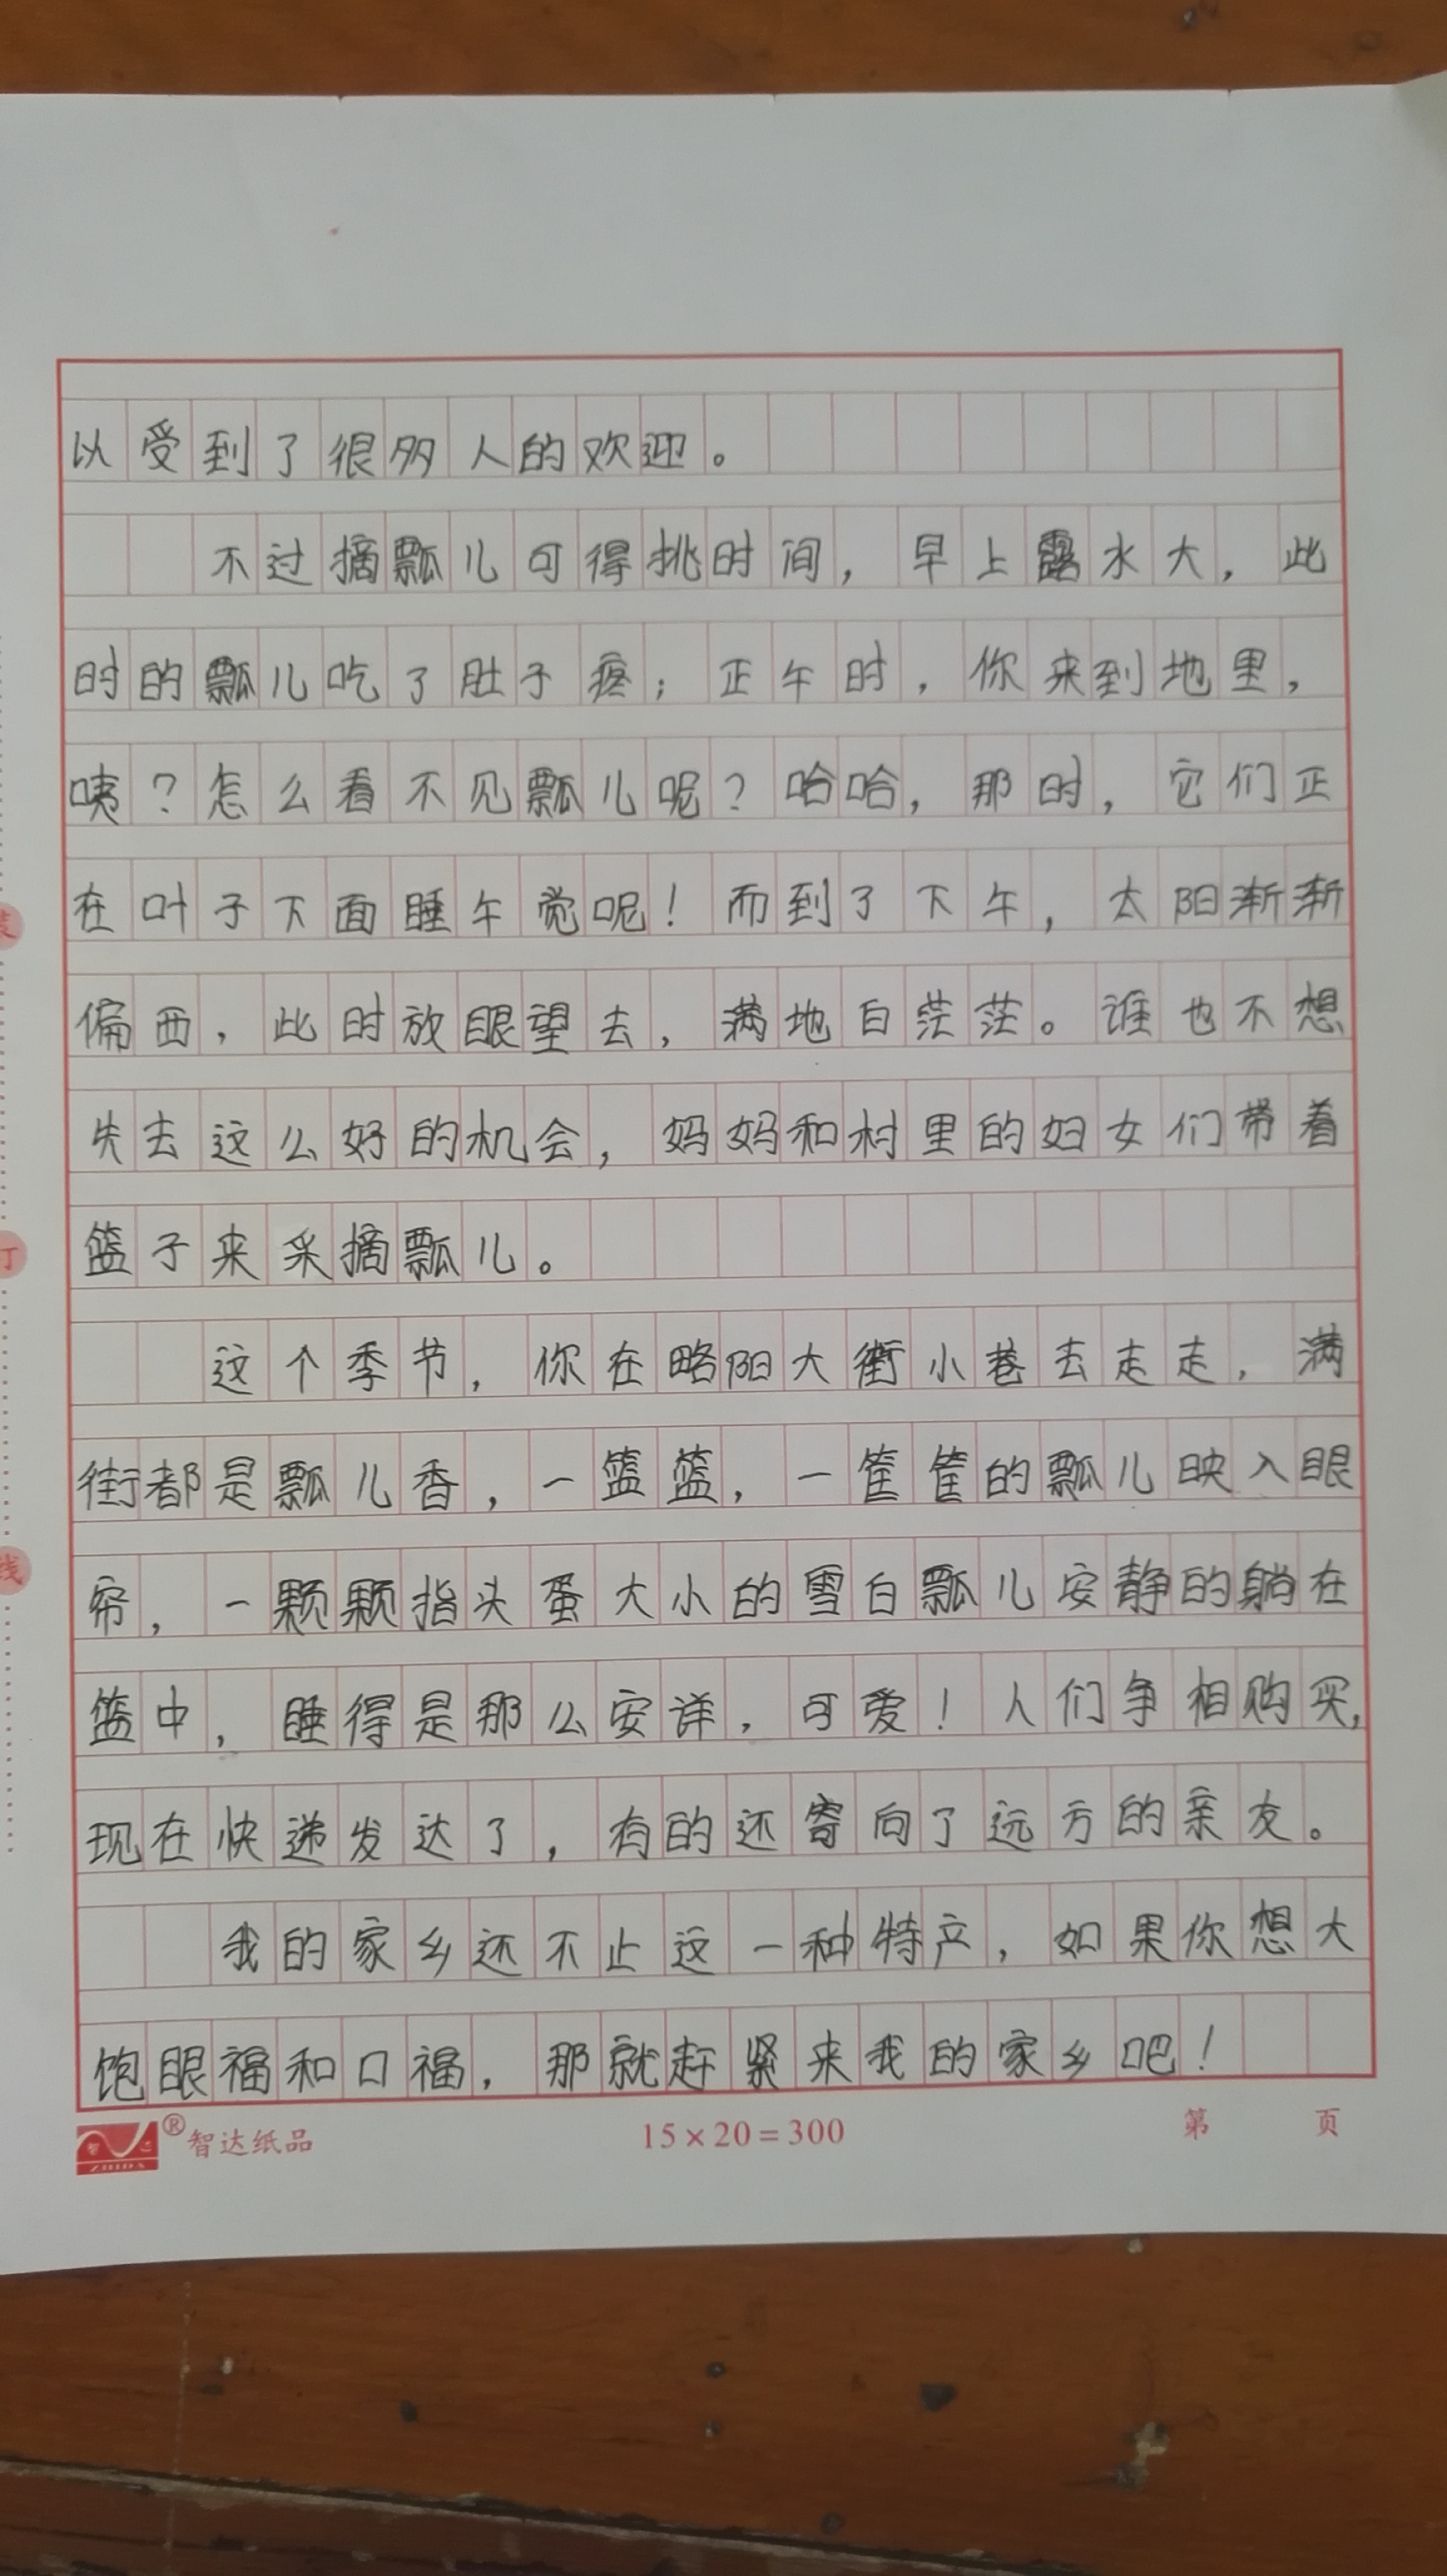 以受到了很多人的欢迎。
不过摘瓢儿可得挑时间，早上露水大，此
时的瓢儿吃了肚子疼；正午时，你来到地里，
咦？怎么看不见瓢儿呢？哈哈，那时，它们正
在叶子下面睡午觉呢！而到了下午，太阳渐渐
偏西，此时放眼望去，满地白茫茫。谁也不想
失去这么好的机会，妈妈和村里的妇女们带着
篮子来采摘瓢儿。
这个季节，你在略阳大街小巷去走走，满
街都是瓢儿香，一篮篮，一筐筐的瓢儿映入眼
帘，一颗颗指头蛋大小的雪白瓢儿安静的躺在
篮中，睡得是那么安详，可爱！人们争相购买，
现在快递发达了，有的还寄向了远方的亲友。
我的家乡还不止这一种特产，如果你想大
饱眼福和口福，那就赶紧来我的家乡吧！
智达 ZHIDA ® 智达纸品 15×20=300 第 页
装
订
线